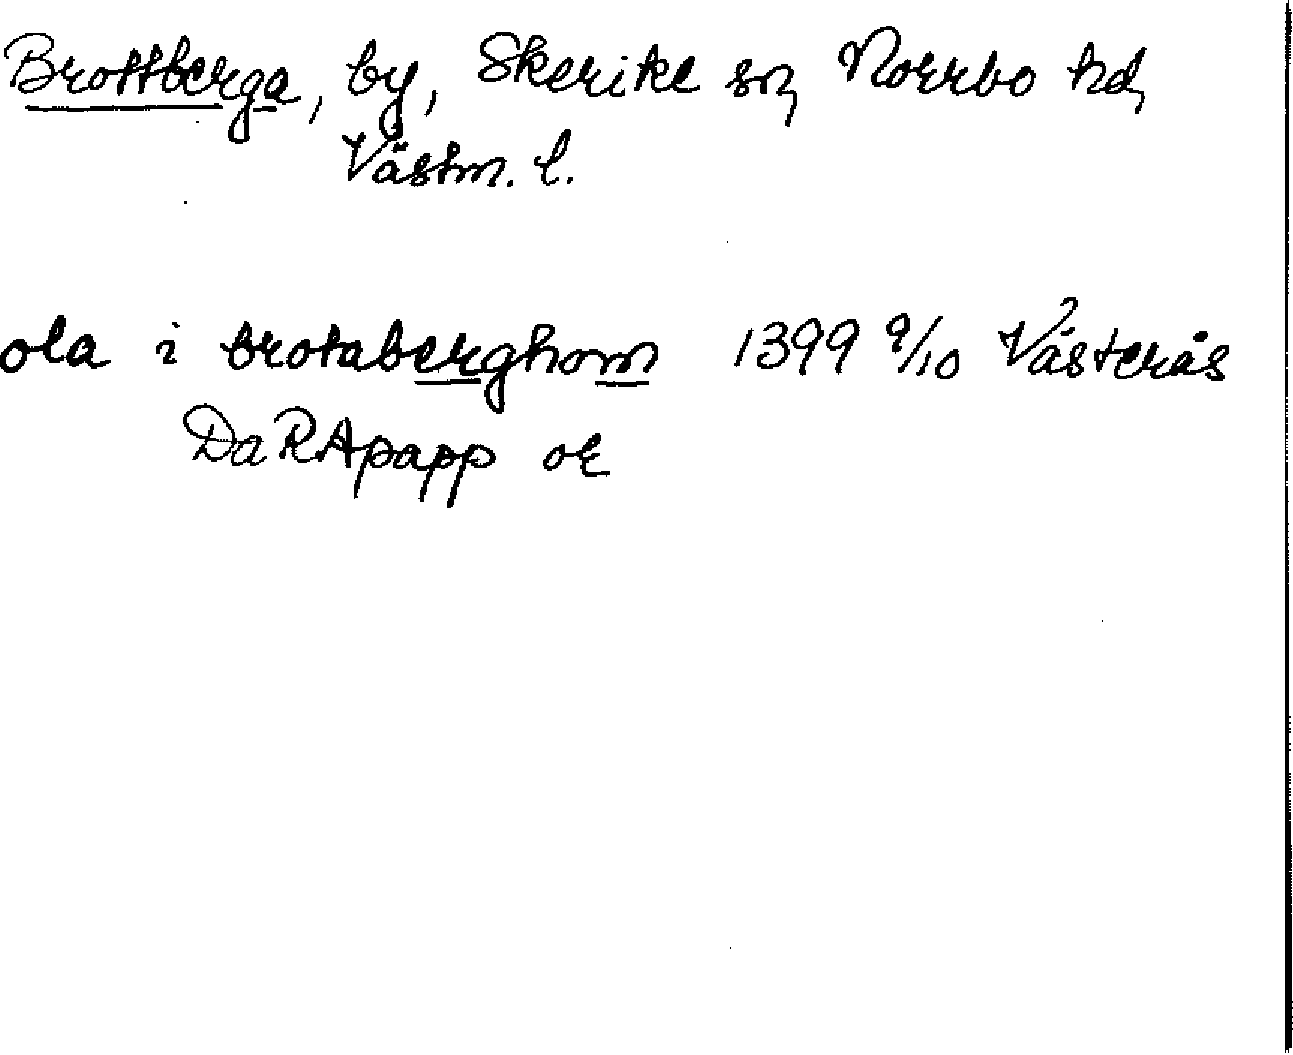 Brottberga, by, Skerike sn, Norrbo hd,
Västm. l.
ola i brotaberghom 1399 9/10 Västerås
DaRApapp or